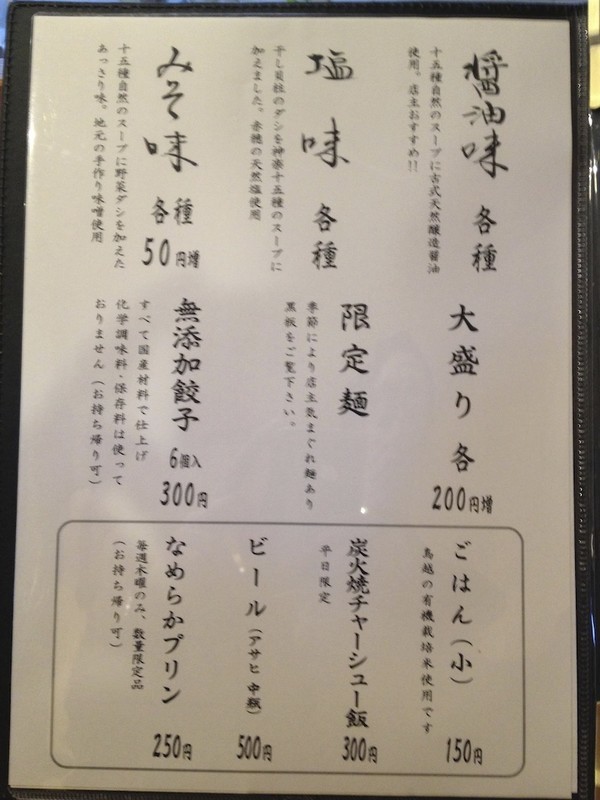 醤油味 各種
十五種自然のスープに古式天然醸造醤油
使用。店主おすすめ!!
塩味 各種
干し貝柱のダシを神楽十五種のスープに
加えました。赤穂の天然塩使用
みそ味 各種
50円増
十五種自然のスープに野菜ダシを加えた
あっさり味。地元の手作り味噌使用
大盛り 各
200円増
限定麺
季節により店主気まぐれ麺あり
黒板をご覧下さい。
無添加餃子
6個入
300円
すべて国産材料で仕上げ
化学調味料・保存料は使って
おりません(お持ち帰り可)
ごはん(小)
鳥越の有機栽培米使用です
150円
炭火焼チャーシュー飯
平日限定
300円
ビール(アサヒ 中瓶)
500円
なめらかプリン
毎週木曜のみ、数量限定品
(お持ち帰り可)
250円